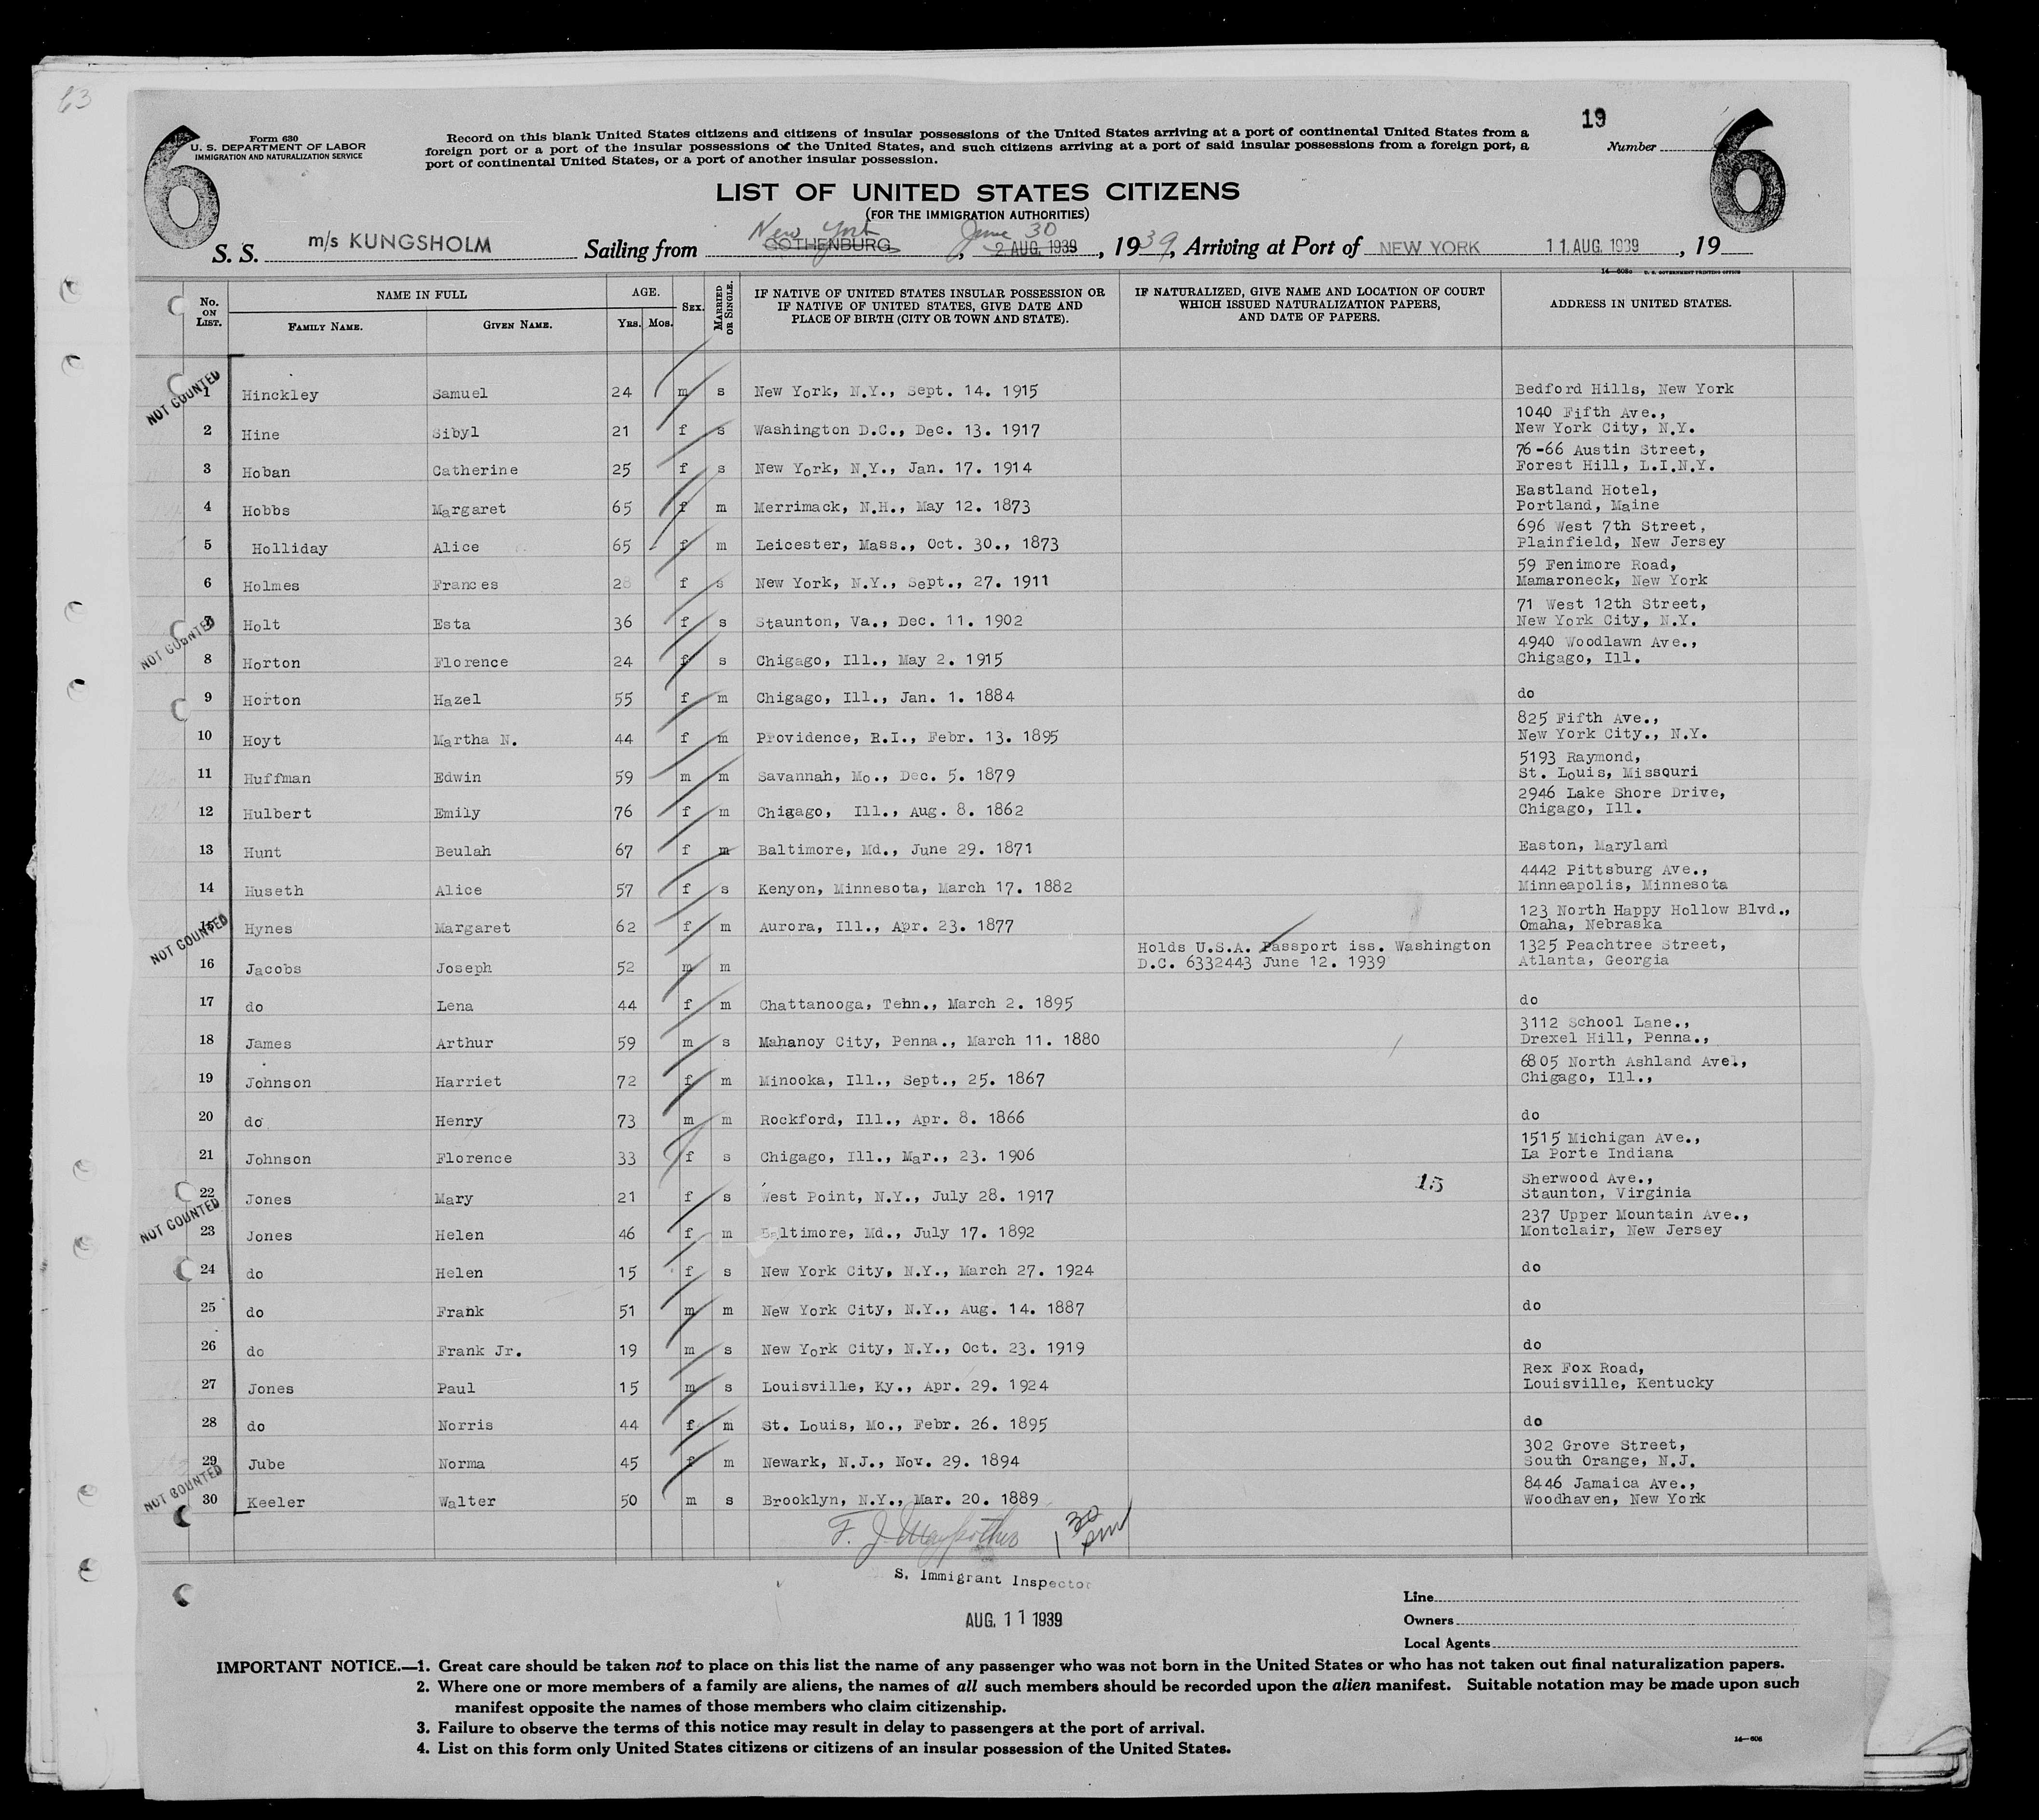 63
6
Form 630
U. S. DEPARTMENT OF LABOR
IMMIGRATION AND NATURALIZATION SERVICE
Record on this blank United States citizens and citizens of insular possessions of the United States arriving at a port of continental United States from a
foreign port or a port of the insular possessions of the United States, and such citizens arriving at a port of said insular possessions from a foreign port, a
port of continental United States, or a port of another insular possession.
19
Number
6
LIST OF UNITED STATES CITIZENS
(FOR THE IMMIGRATION AUTHORITIES)
New York June 30
S. S. m/s KUNGSHOLM Sailing from GOTHENBURG, 2 AUG. 1939, 1939, Arriving at Port of NEW YORK 11 AUG. 1939, 19
14—608a U. S. GOVERNMENT PRINTING OFFICE
No. ON LIST. NAME IN FULL FAMILY NAME. GIVEN NAME. AGE. YRS. MOS. SEX. MARRIED OR SINGLE. IF NATIVE OF UNITED STATES INSULAR POSSESSION OR IF NATIVE OF UNITED STATES, GIVE DATE AND PLACE OF BIRTH (CITY OR TOWN AND STATE). IF NATURALIZED, GIVE NAME AND LOCATION OF COURT WHICH ISSUED NATURALIZATION PAPERS, AND DATE OF PAPERS. ADDRESS IN UNITED STATES.
NOT COUNTED
1 Hinckley Samuel 24 m s New York, N.Y., Sept. 14. 1915 Bedford Hills, New York
1040 Fifth Ave.,
2 Hine Sibyl 21 f s Washington D.C., Dec. 13. 1917 New York City, N.Y.
76-66 Austin Street,
3 Hoban Catherine 25 f s New York, N.Y., Jan. 17. 1914 Forest Hill, L.I.N.Y.
Eastland Hotel,
4 Hobbs Margaret 65 f m Merrimack, N.H., May 12. 1873 Portland, Maine
696 West 7th Street,
5 Holliday Alice 65 f m Leicester, Mass., Oct. 30., 1873 Plainfield, New Jersey
59 Fenimore Road,
6 Holmes Frances 28 f s New York, N.Y., Sept., 27. 1911 Mamaroneck, New York
71 West 12th Street,
NOT COUNTED
7 Holt Esta 36 f s Staunton, Va., Dec. 11. 1902 New York City, N.Y.
4940 Woodlawn Ave.,
8 Horton Florence 24 f s Chigago, Ill., May 2. 1915 Chigago, Ill.
9 Horton Hazel 55 f m Chigago, Ill., Jan. 1. 1884 do
825 Fifth Ave.,
10 Hoyt Martha N. 44 f m Providence, R.I., Febr. 13. 1895 New York City., N.Y.
5193 Raymond,
11 Huffman Edwin 59 m m Savannah, Mo., Dec. 5. 1879 St. Louis, Missouri
2946 Lake Shore Drive,
12 Hulbert Emily 76 f m Chigago, Ill., Aug. 8. 1862 Chigago, Ill.
13 Hunt Beulah 67 f m Baltimore, Md., June 29. 1871 Easton, Maryland
4442 Pittsburg Ave.,
14 Huseth Alice 57 f s Kenyon, Minnesota, March 17. 1882 Minneapolis, Minnesota
123 North Happy Hollow Blvd.,
NOT COUNTED
15 Hynes Margaret 62 f m Aurora, Ill., Apr. 23. 1877 Omaha, Nebraska
Holds U.S.A. Passport iss. Washington 1325 Peachtree Street,
16 Jacobs Joseph 52 m m D.C. 6332443 June 12. 1939 Atlanta, Georgia
17 do Lena 44 f m Chattanooga, Tehn., March 2. 1895 do
3112 School Lane.,
18 James Arthur 59 m s Mahanoy City, Penna., March 11. 1880 Drexel Hill, Penna.,
6805 North Ashland Ave.,
19 Johnson Harriet 72 f m Minooka, Ill., Sept., 25. 1867 Chigago, Ill.,
20 do Henry 73 m m Rockford, Ill., Apr. 8. 1866 do
1515 Michigan Ave.,
21 Johnson Florence 33 f s Chigago, Ill., Mar., 23. 1906 La Porte Indiana
15 Sherwood Ave.,
22 Jones Mary 21 f s West Point, N.Y., July 28. 1917 Staunton, Virginia
NOT COUNTED
237 Upper Mountain Ave.,
23 Jones Helen 46 f m Baltimore, Md., July 17. 1892 Montclair, New Jersey
24 do Helen 15 f s New York City, N.Y., March 27. 1924 do
25 do Frank 51 m m New York City, N.Y., Aug. 14. 1887 do
26 do Frank Jr. 19 m s New York City, N.Y., Oct. 23. 1919 do
Rex Fox Road,
27 Jones Paul 15 m s Louisville, Ky., Apr. 29. 1924 Louisville, Kentucky
28 do Norris 44 f m St. Louis, Mo., Febr. 26. 1895 do
302 Grove Street,
29 Jube Norma 45 f m Newark, N.J., Nov. 29. 1894 South Orange, N.J.
NOT COUNTED
8446 Jamaica Ave.,
30 Keeler Walter 50 m s Brooklyn, N.Y., Mar. 20. 1889 Woodhaven, New York
F. J. 1 30 pm
S. Immigrant Inspector
AUG. 11 1939
Line
Owners
Local Agents
IMPORTANT NOTICE.—1. Great care should be taken not to place on this list the name of any passenger who was not born in the United States or who has not taken out final naturalization papers.
2. Where one or more members of a family are aliens, the names of all such members should be recorded upon the alien manifest. Suitable notation may be made upon such
manifest opposite the names of those members who claim citizenship.
3. Failure to observe the terms of this notice may result in delay to passengers at the port of arrival.
4. List on this form only United States citizens or citizens of an insular possession of the United States.
14—608